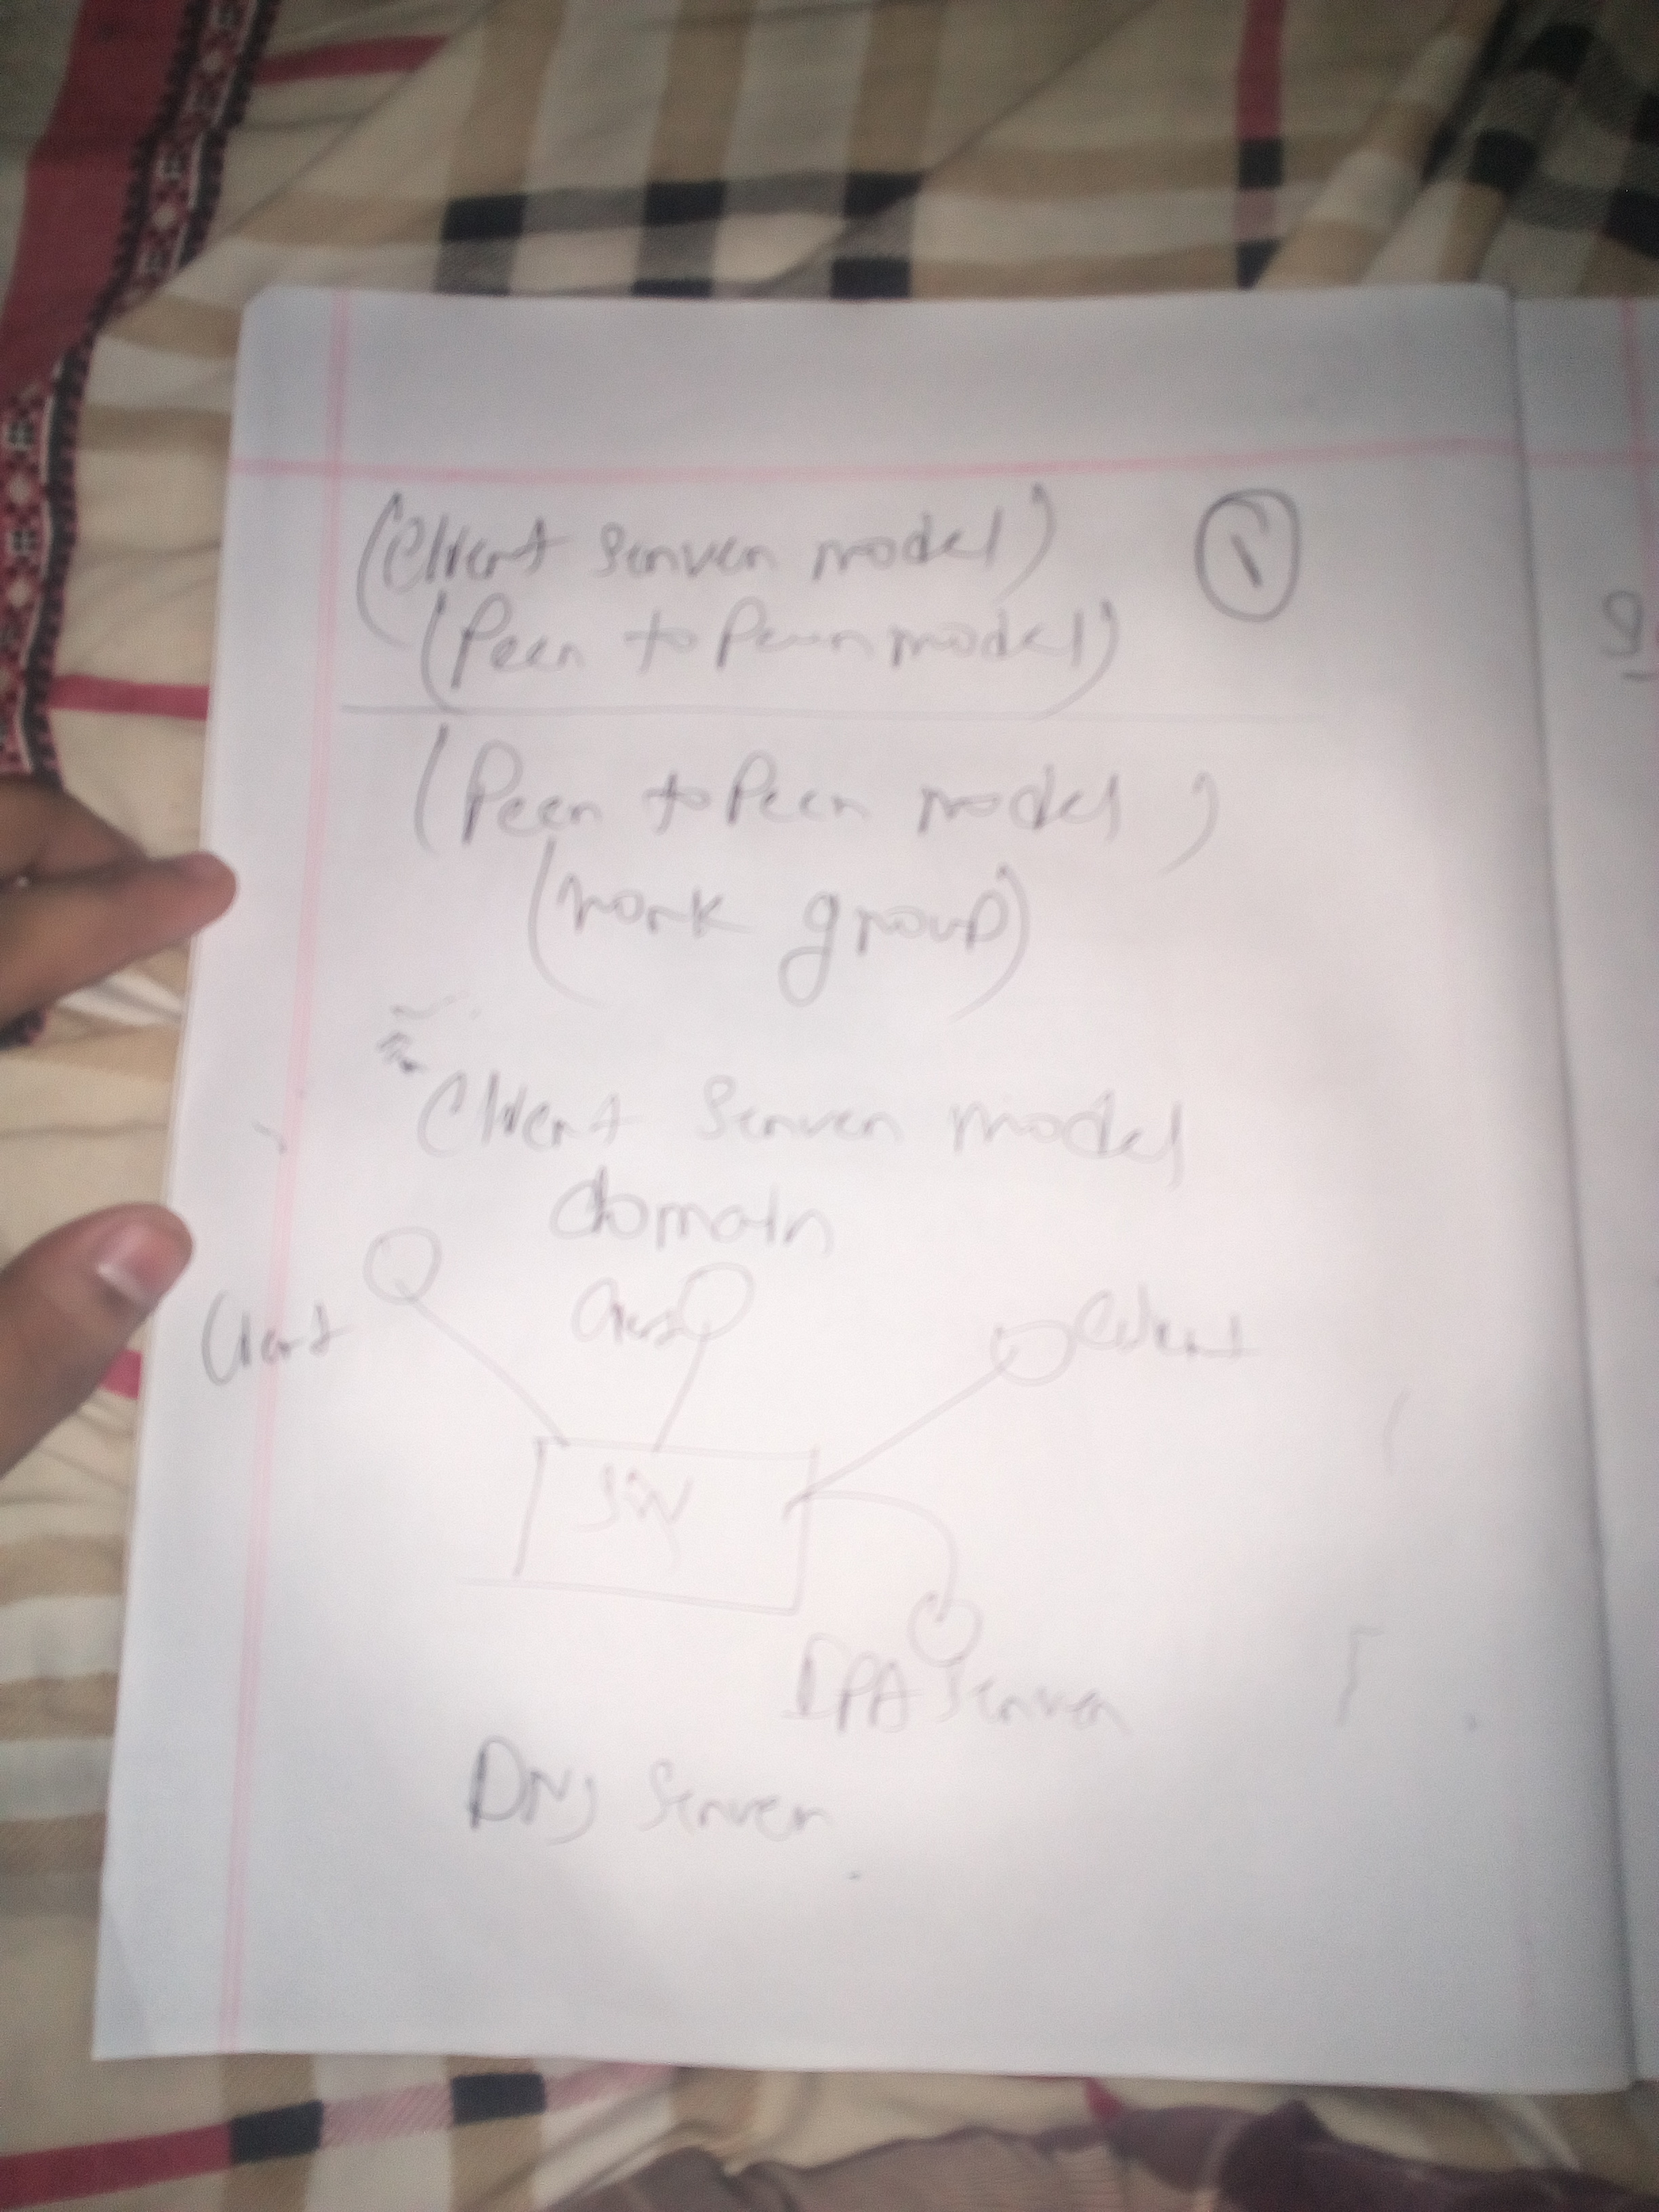 (Client Server model) 1
(Peer to Peer model)
(Peer to Peer model)
(work group)
Client Server model
domain
Client Client Client
SW
Server
DNS Server